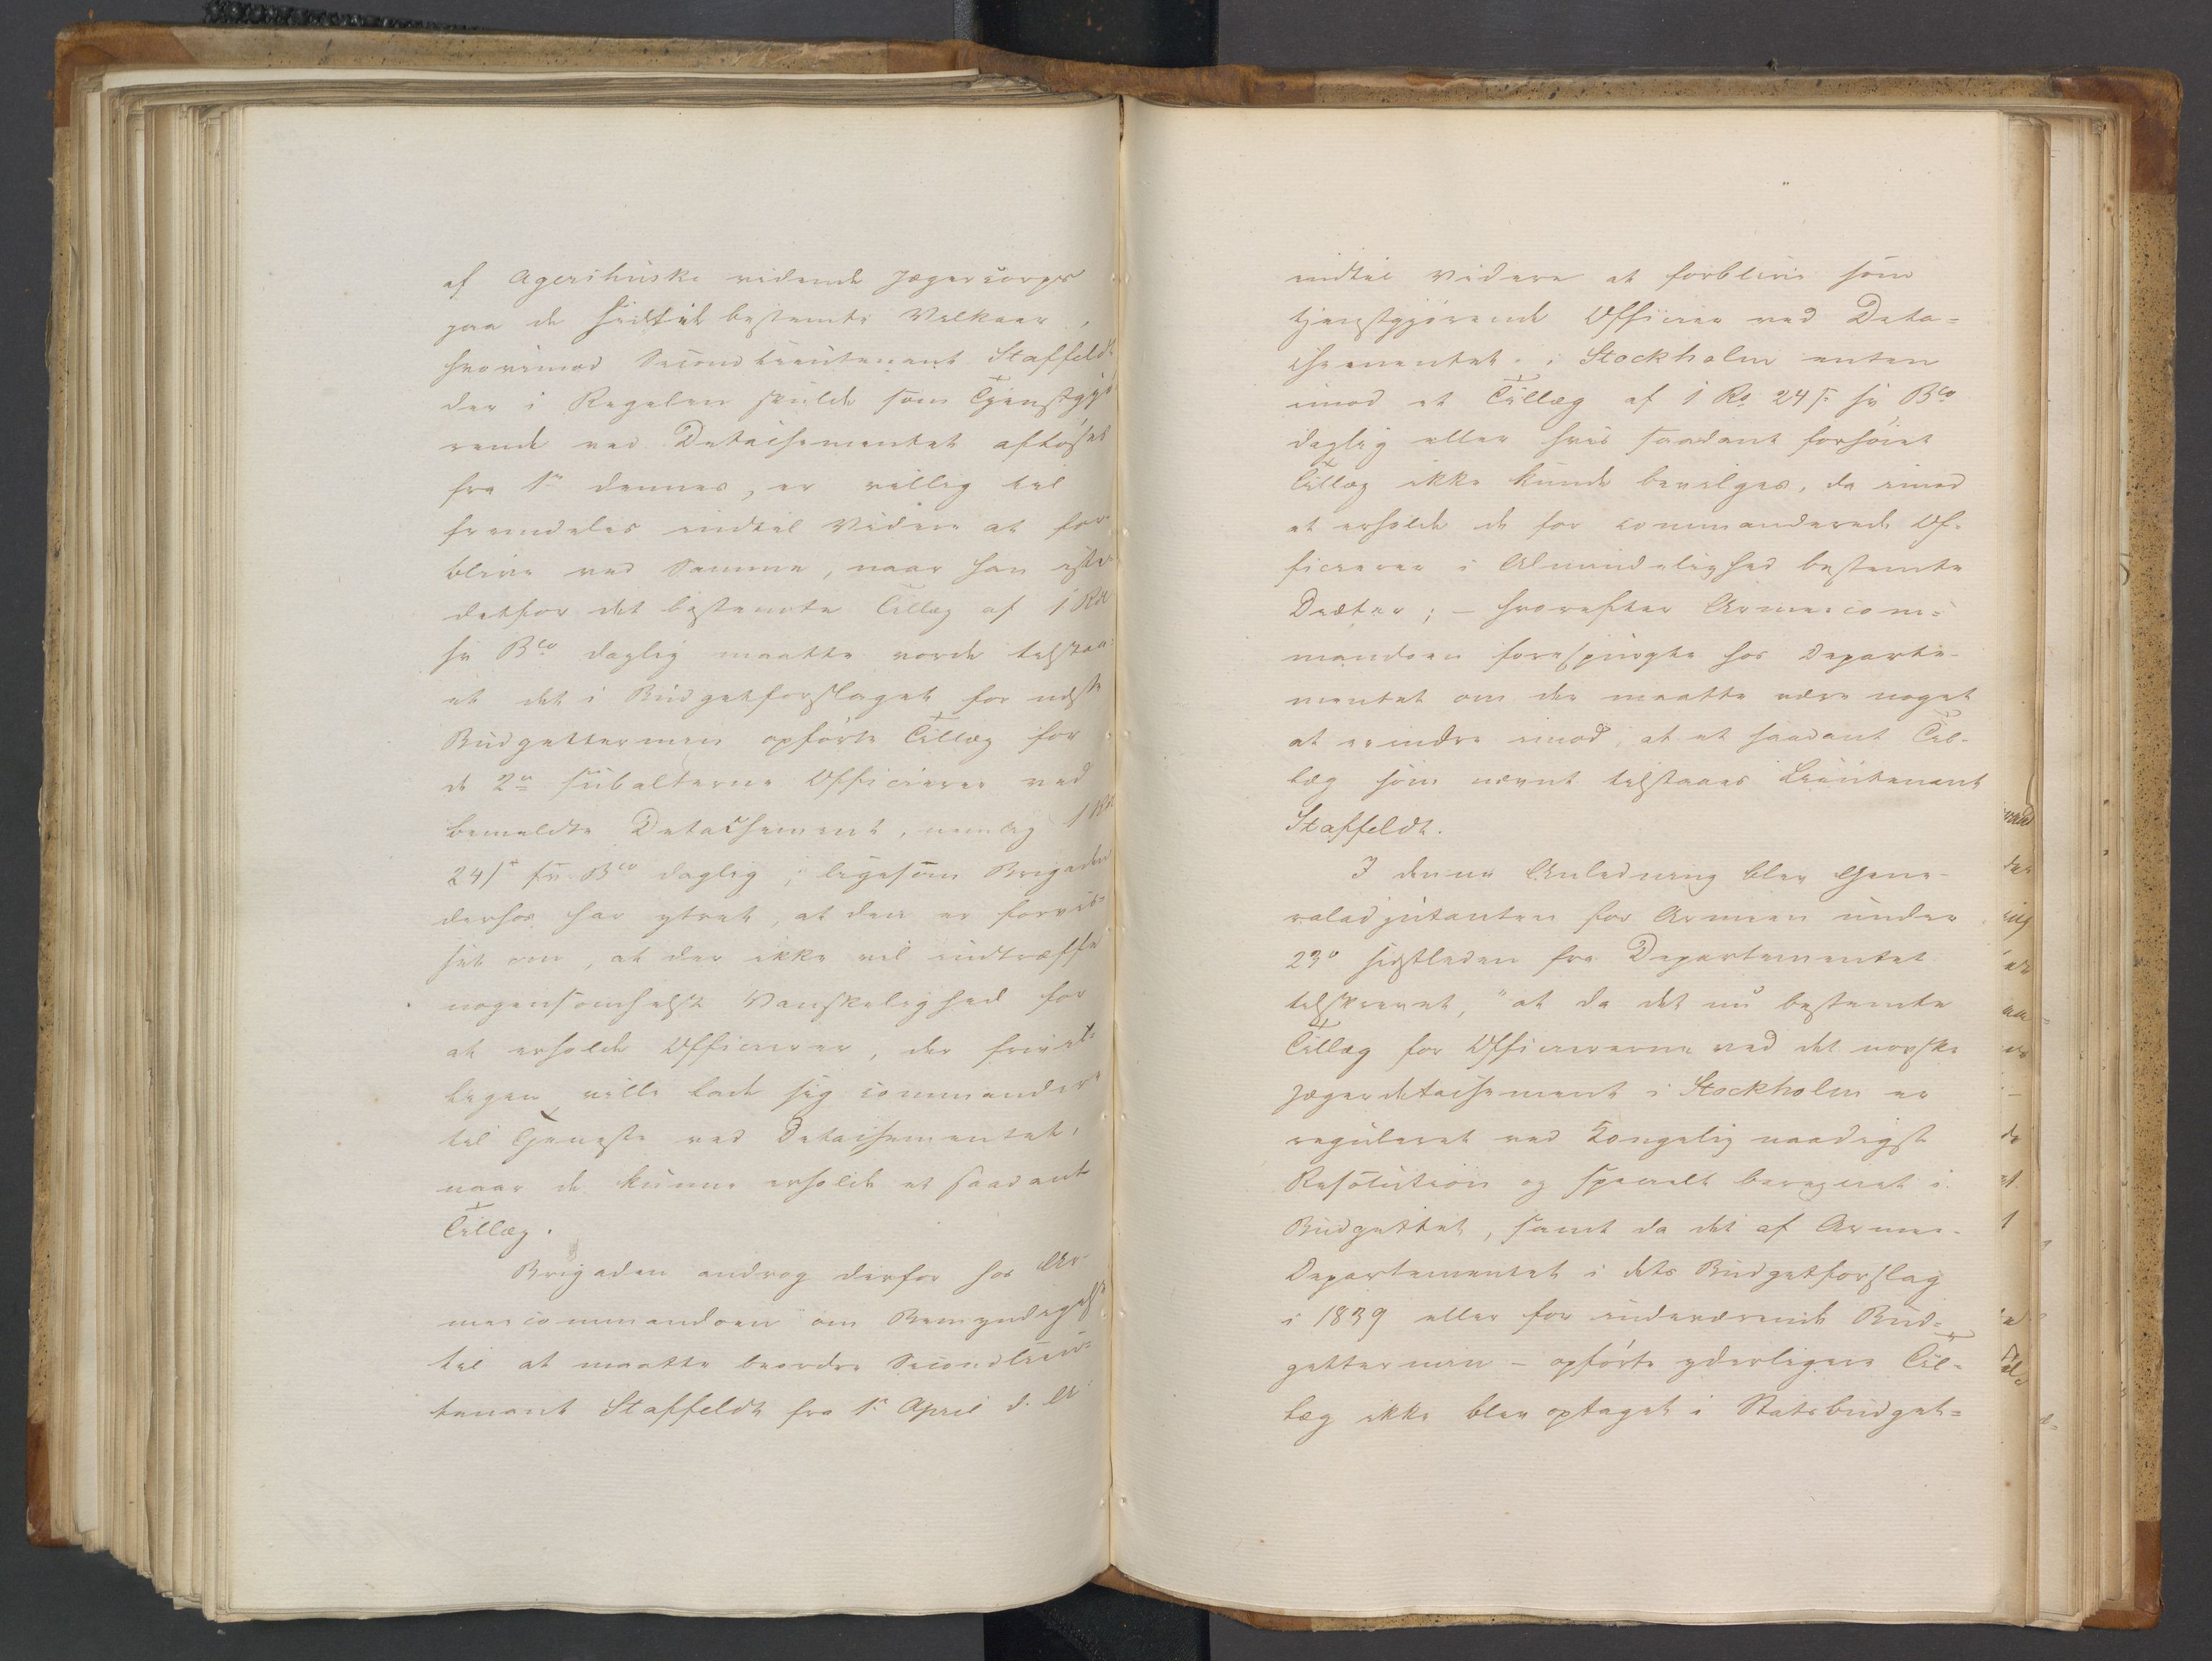 af Agershuske ridende Jægercorps
paa de hidtil bestemte Vilkaar,
hvorimod Secondlieutenant Staffeldt
der i Regelen skulde som Tjenstgjö
rende ved Detachementet aflöses
fra 1ste dennes, er villig til
fremdeles indtil Videre at for-
blive ved Samme, naar han iste-
detfor det bestemte Tillæg af 1 Rd
sv Bco daglig maatte vorde tilstaa-
et det i Budgetforslaget for næste
Budgettermin opförte Tillæg for
de 2de subalterne Officierer ved
bemeldte Detachement, nemlig 1 Rd
24 s sv. Bco daglig; ligesom Brigaden
derhos har ytret, at den er forvis-
set om, at der ikke vil indtræffe
nogensomhelst Vanskelighed for
at erholde Officierer, der frivil-
ligen ville lade sig commandere
til Tjeneste ved Detachementet,
naar de kunne erholde et saadant
Tillæg.
Brigaden androg derfor hos Ar-
meecommandoen om Bemyndigelse
til at maatte beordre Secondlieu-
tenant Staffeldt fra 1ste April d. A.
indtil videre at forblive som
tjenstgjörende Officier ved Deta-
chementet i Stockholm enten
imod et Tillæg af 1 Rd 24 s. sv Bco
daglig eller hvis saadant forhöiet
Tillæg ikke kunde bevilges, da imod
at erholde de for commanderede Of-
ficierer i Almindelighed bestemte
Diæter; - hvorefter Armeecom-
mandoen forespurgte hos Departe-
mentet om der maatte være noget
at erindre imod, at et saadant Til-
læg som nævnt tilstaaes Lieutenant
Staffeldt.
I denne Anledning blev Gene-
raladjutanten for Armeen under
23de sidstleden fra Departementet
tilskrevet, "at da det nu bestemte
Tillæg for Officiererne ved det norske
Jægerdetachement i Stockholm er
reguleret ved Kongelig naadigst
Resolution og specielt beregnet i
Budgettet, samt da det af Armee-
Departementet i dets Budgetforslag
i 1839 eller for indeværende Bud-
gettermin - opförte yderligere Til-
læg ikke blev optaget i Statsbudget-